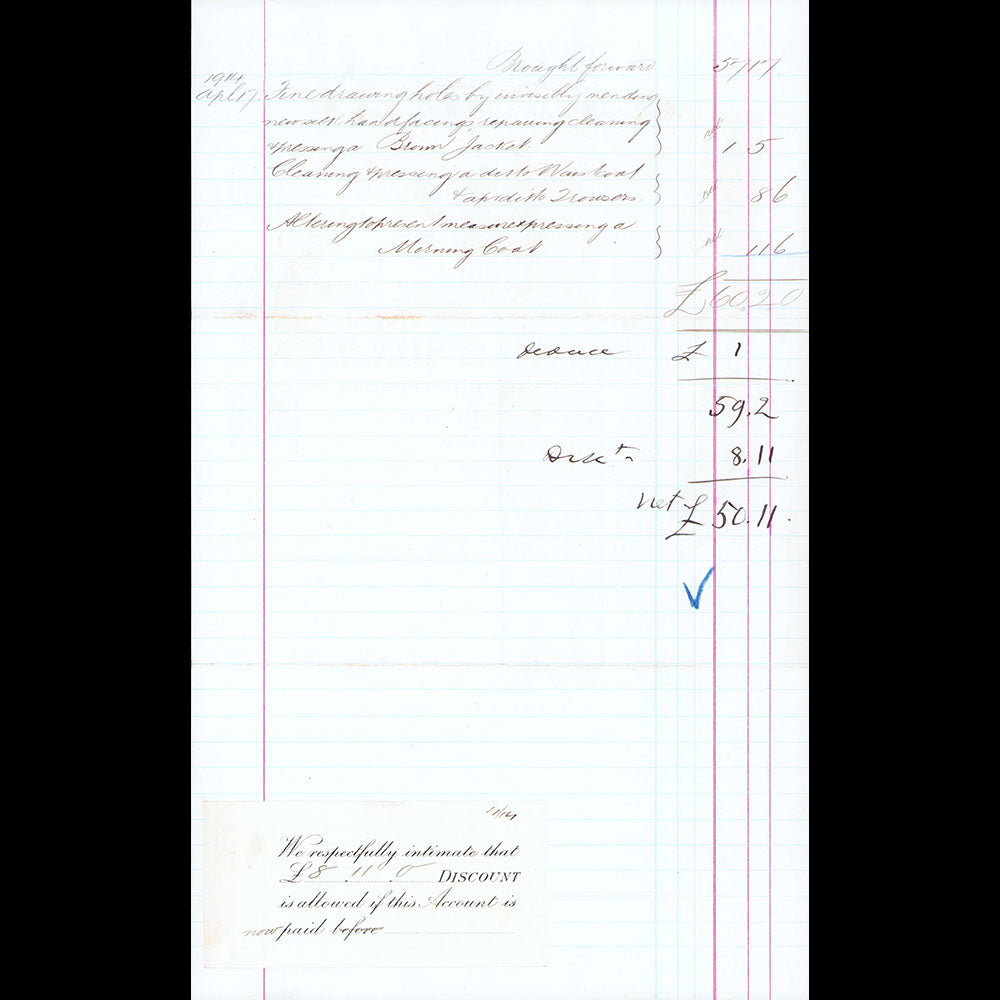 Brought forward 57 17
1914
Apl 17. Fine drawing holes by invisibly mending
new silk hand facings, repairing cleaning
& pressing a Brown Jacket. net 1 5
Cleaning & pressing a ditto Waistcoat
& a pr ditto Trousers. net 8 6
Altering to present measure & pressing a
Morning Coat net 11 6
£60. 2. 0
deduce £ 1
59.2
Disct 8.11
net £ 50.11.
11/14
We respectfully intimate that
£8 . 11 . 0 DISCOUNT
is allowed if this Account is
now paid before